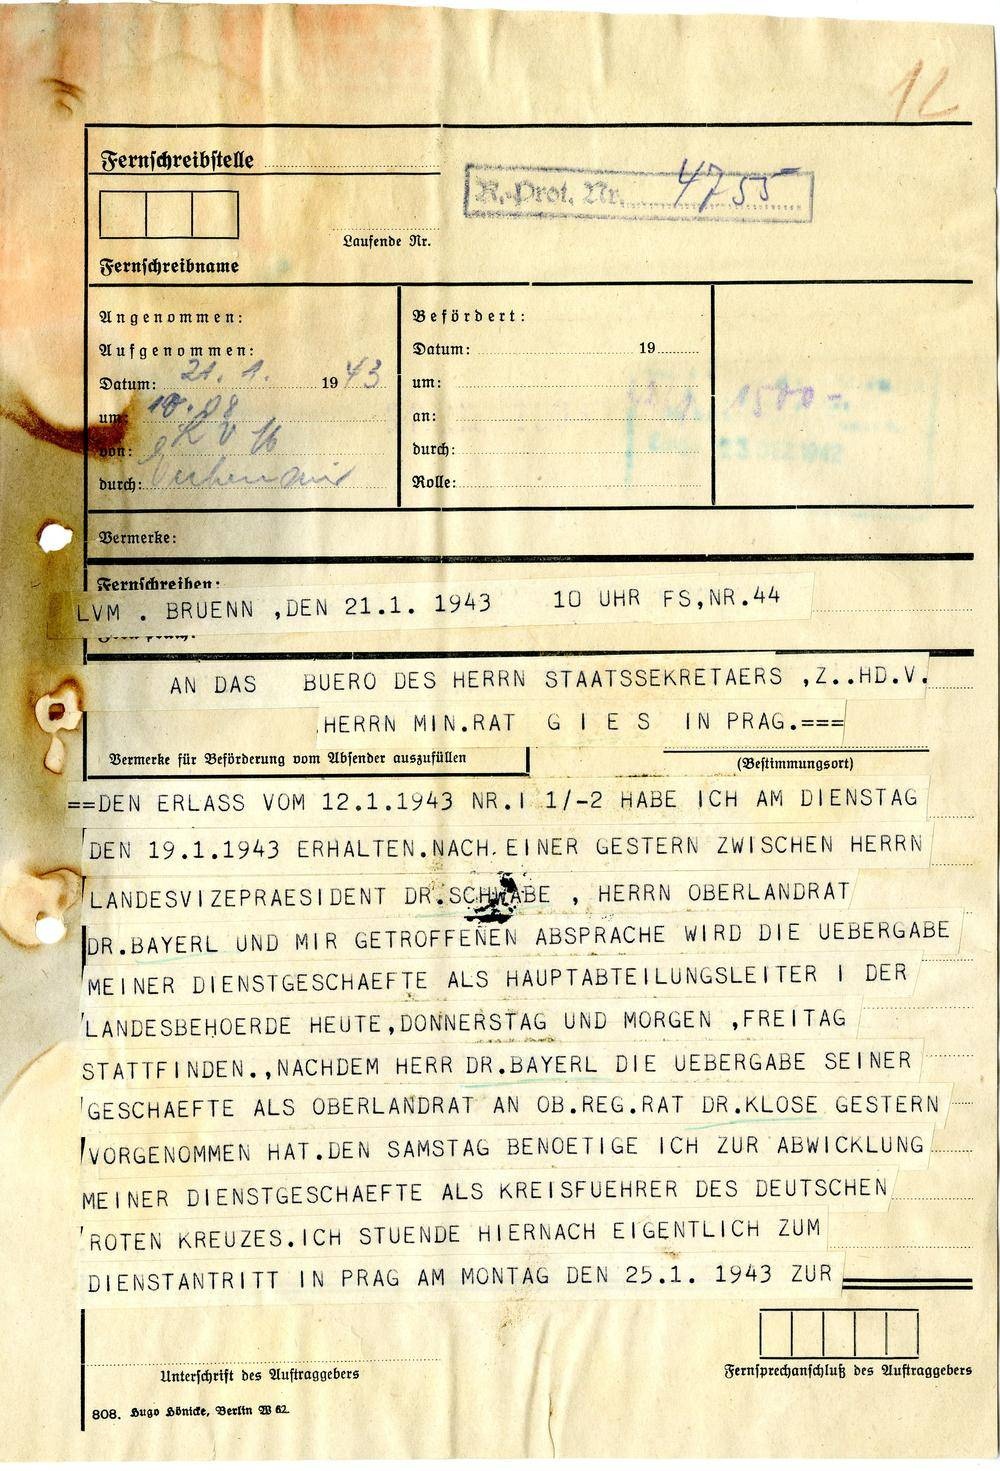 12
Fernschreibstelle
R.-Prot. Nr. 4755
Laufende Nr.
Fernschreibname
Angenommen:
Befördert:
Aufgenommen:
Datum: 19
Datum: 21. 1. 1943
um:
um: 10.08
an:
1500
von:
durch:
durch:
Rolle:
Vermerke:
Fernschreiben:
LVM . BRUENN ,DEN 21.1. 1943 10 UHR FS,NR.44
AN DAS BUERO DES HERRN STAATSSEKRETAERS ,Z..HD.V.
HERRN MIN.RAT G I E S IN PRAG.===
Vermerke für Beförderung vom Absender auszufüllen
(Bestimmungsort)
==DEN ERLASS VOM 12.1.1943 NR.I 1/-2 HABE ICH AM DIENSTAG
DEN 19.1.1943 ERHALTEN.NACH.EINER GESTERN ZWISCHEN HERRN
LANDESVIZEPRAESIDENT DR.SCHWABE , HERRN OBERLANDRAT
DR.BAYERL UND MIR GETROFFENEN ABSPRACHE WIRD DIE UEBERGABE
MEINER DIENSTGESCHAEFTE ALS HAUPTABTEILUNGSLEITER I DER
LANDESBEHOERDE HEUTE,DONNERSTAG UND MORGEN ,FREITAG
STATTFINDEN.,NACHDEM HERR DR.BAYERL DIE UEBERGABE SEINER
GESCHAEFTE ALS OBERLANDRAT AN OB.REG.RAT DR.KLOSE GESTERN
VORGENOMMEN HAT.DEN SAMSTAG BENOETIGE ICH ZUR ABWICKLUNG
MEINER DIENSTGESCHAEFTE ALS KREISFUEHRER DES DEUTSCHEN
ROTEN KREUZES.ICH STUENDE HIERNACH EIGENTLICH ZUM
DIENSTANTRITT IN PRAG AM MONTAG DEN 25.1. 1943 ZUR
Unterschrift des Auftraggebers
Fernsprechanschluß des Auftraggebers
808. Hugo Hönicke, Berlin W 62.